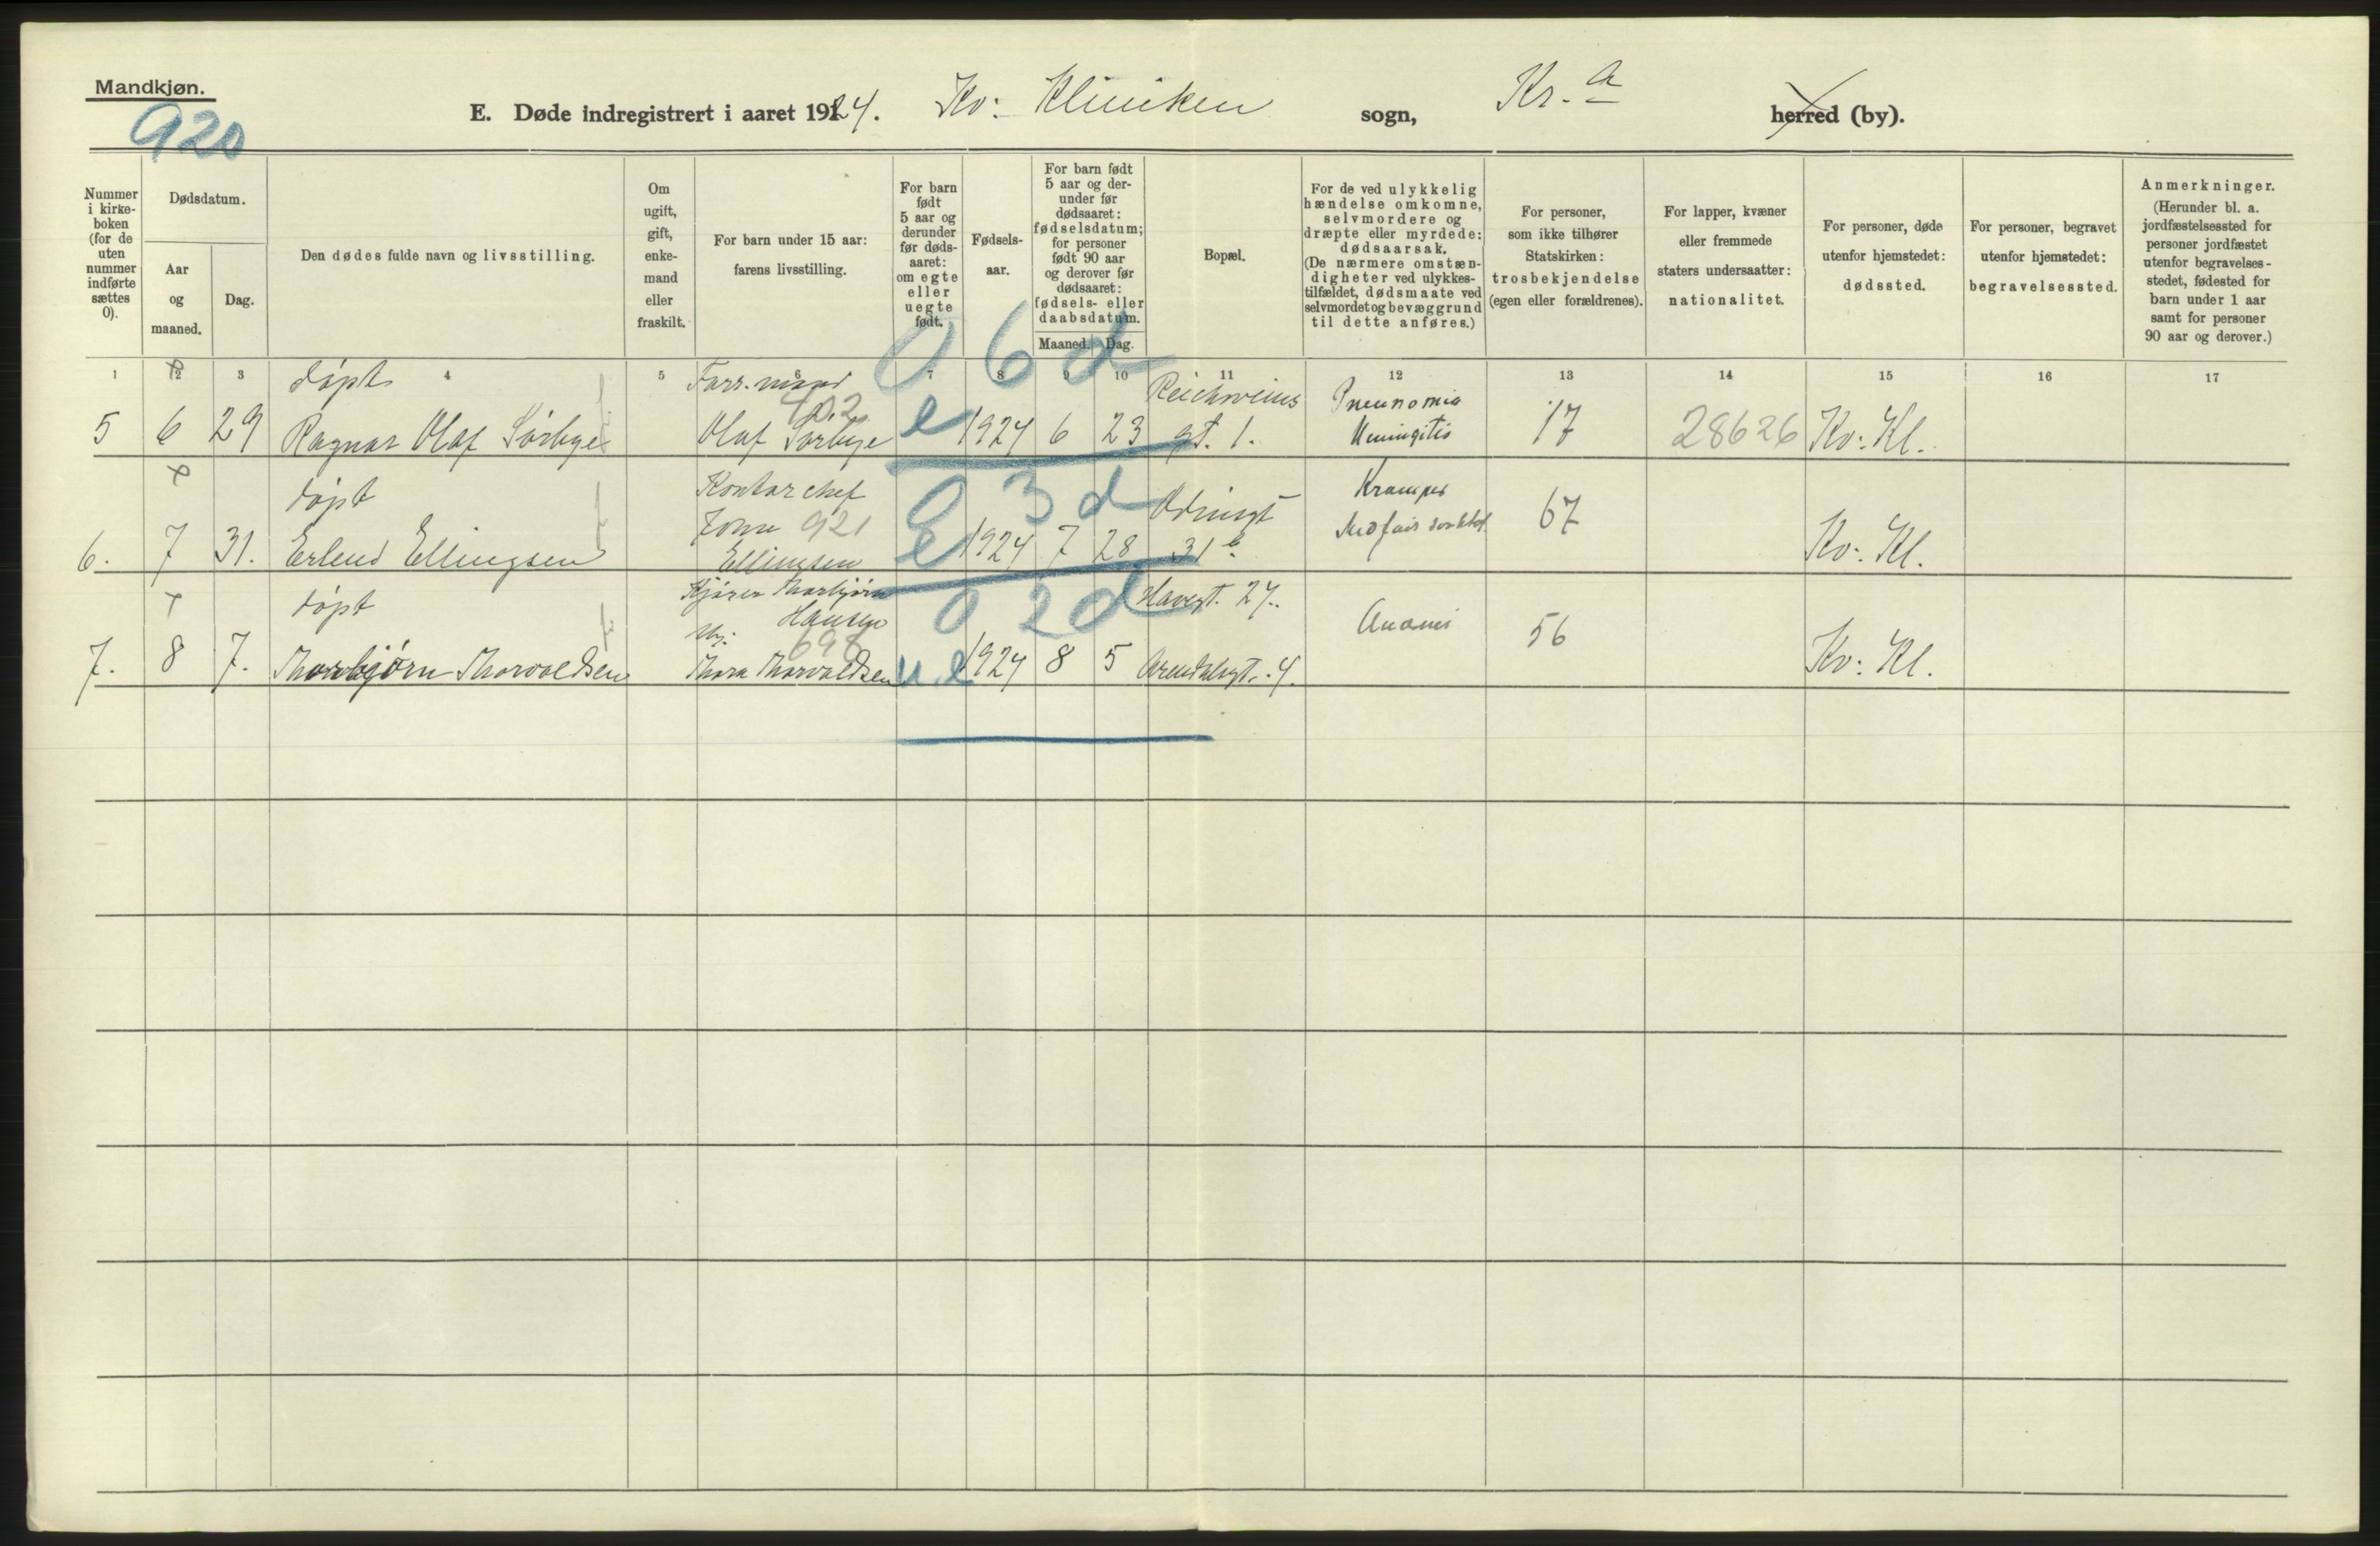 Mandkjøn.
920
E. Døde indregistrert i aaret 1924. Kv: Kliniken sogn, Kr.a herred (by).
Nummer i kirke-boken (for de uten nummer indførte sættes 0).
Dødsdatum.
Aar og maaned.
Dag.
Den dødes fulde navn og livsstilling.
Om ugift, gift, enke-mand eller fraskilt.
For barn under 15 aar: farens livsstilling.
For barn født 5 aar og derunder før døds-aaret: om egte eller uegte født.
Fødsels-aar.
For barn født 5 aar og der-under før dødsaaret: fødselsdatum; for personer født 90 aar og derover før dødsaaret: fødsels- eller daabsdatum.
Maaned. Dag.
Bopæl.
For de ved ulykkelig hændelse omkomne, selvmordere og dræpte eller myrdede: dødsaarsak. (De nærmere omstæn-digheter ved ulykkes-tilfældet, dødsmaate ved selvmordet og bevæggrund til dette anføres.)
For personer, som ikke tilhører Statskirken: trosbekjendelse (egen eller forældrenes).
For lapper, kvæner eller fremmede staters undersaatter: nationalitet.
For personer, døde utenfor hjemstedet: dødssted.
For personer, begravet utenfor hjemstedet: begravelsessted.
Anmerkninger. (Herunder bl. a. jordfæstelsessted for personer jordfæstet utenfor begravelses-stedet, fødested for barn under 1 aar samt for personer 90 aar og derover.)
1 2 3 4 5 6 7 8 9 10 11 12 13 14 15 16 17
døpt 0 6 d Reichweins Pneunomia
5 6 29 Ragnar Olaf Sørbye Olaf Sørbye 402 e 1924 6 23 gt. 1. Meningitis 17 28626 Kv: Kl.
døpt Kontorchef 0 3 d Odinsgt Kramper
921 67
6. 7 31. Erlend Ellingsen Ellingsen e 1924 7 28 31 b Kv: Kl.
døpt Thorbjørn Hansen 0 2 d Havegt. 27.
698 56
7. 8 7. Thorbjørn Thorvaldsen Thora Thorvaldsen u.e 1924 8 5 Arendalsgt. 4. Kv: Kl.